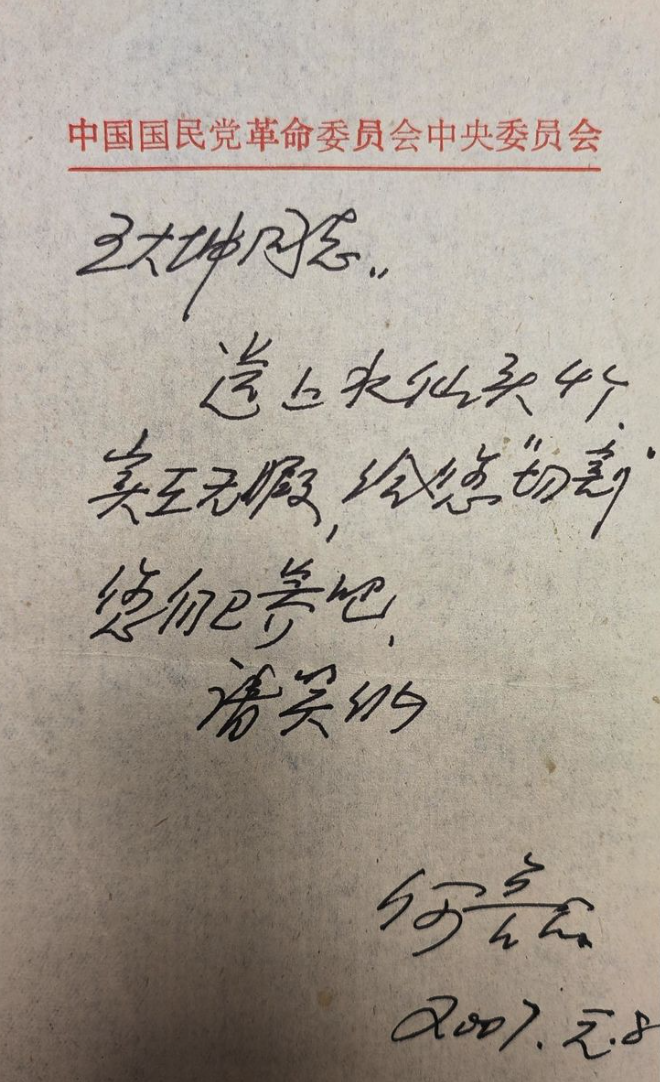 中国国民党革命委员会中央委员会
王大坤同志:
送上水仙头4个.
实在无暇,给您"切割"
您们自养吧,
请笑纳
何鲁丽
2007.元.8